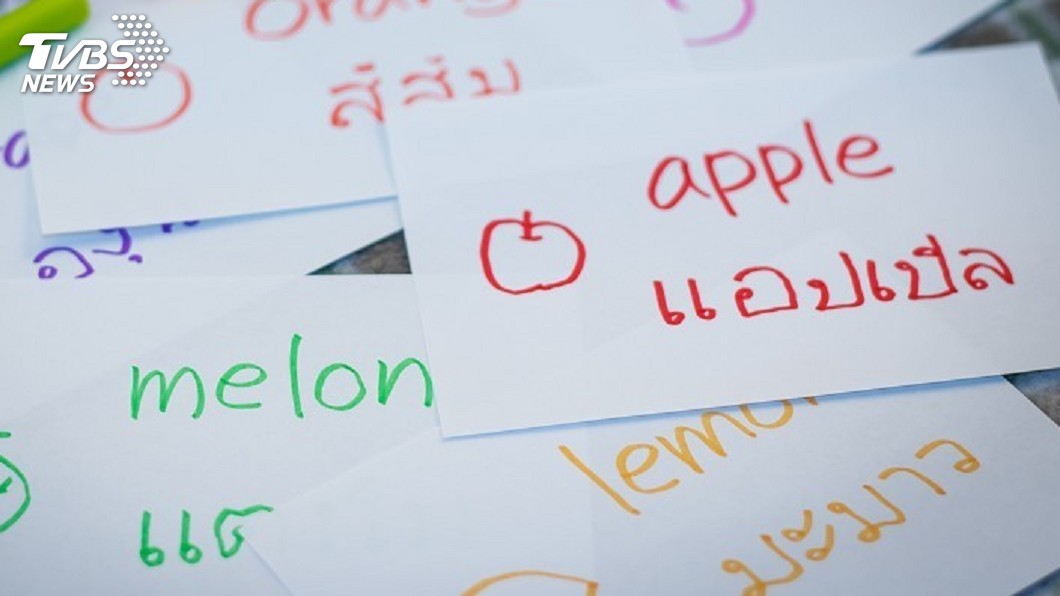 TVBS
NEWS
orang
สีส้ม
apple
แอปเปิล
melon
lemon
มะนาว